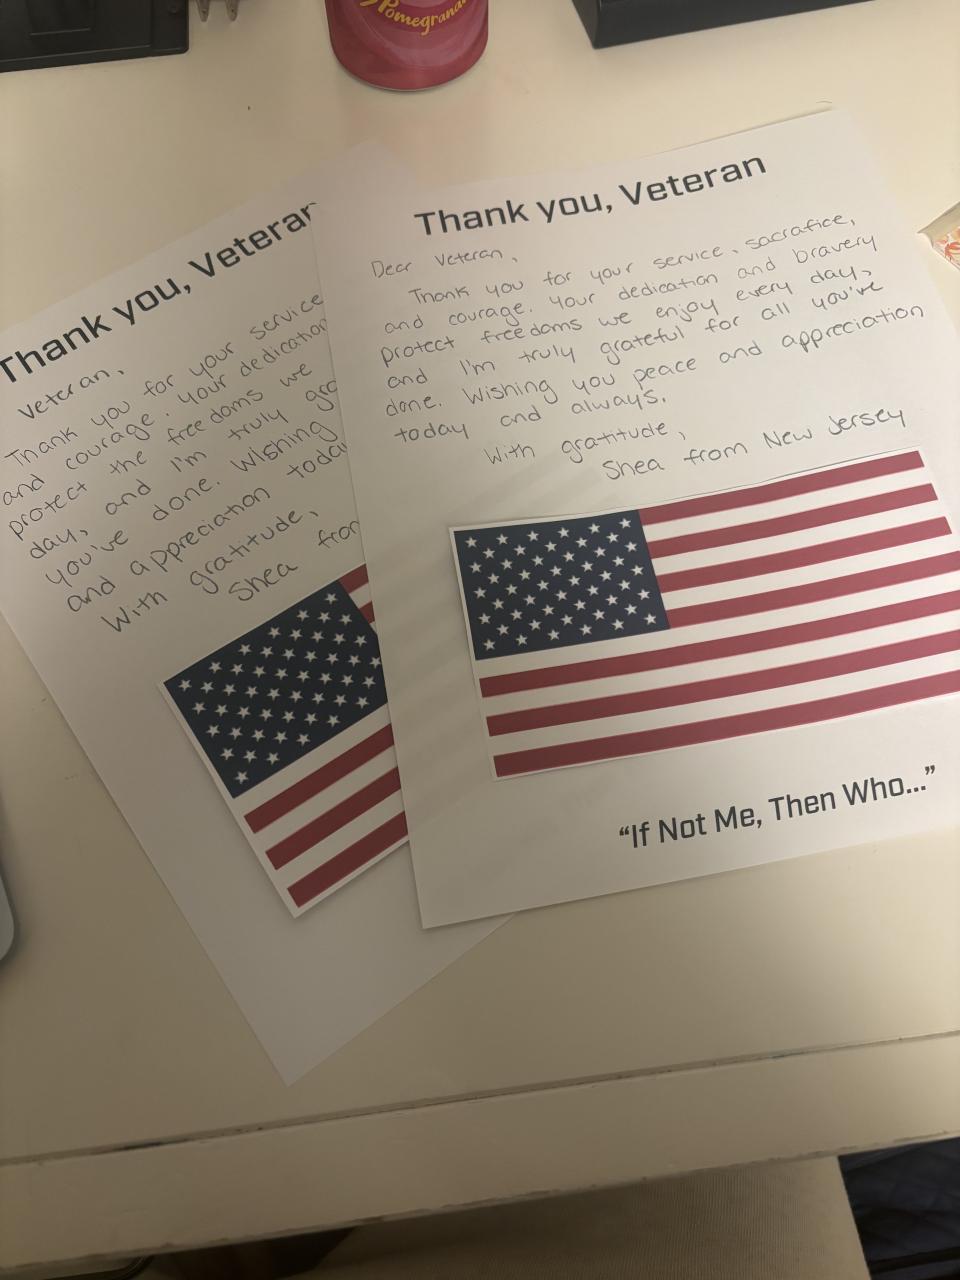 Pomegrana
Thank you, Veteran
Veteran,
Thank you for your service
and courage. Your dedication
protect the freedoms we
day, and I'm truly gra
you've done. Wishing
and appreciation toda
With gratitude,
Shea from
Thank you, Veteran
Dear Veteran,
Thank you for your service, sacrafice,
and courage. Your dedication and bravery
protect freedoms we enjoy every day,
and I'm truly grateful for all you've
done. Wishing you peace and appreciation
today and always.
With gratitude,
Shea from New Jersey
"If Not Me, Then Who..."